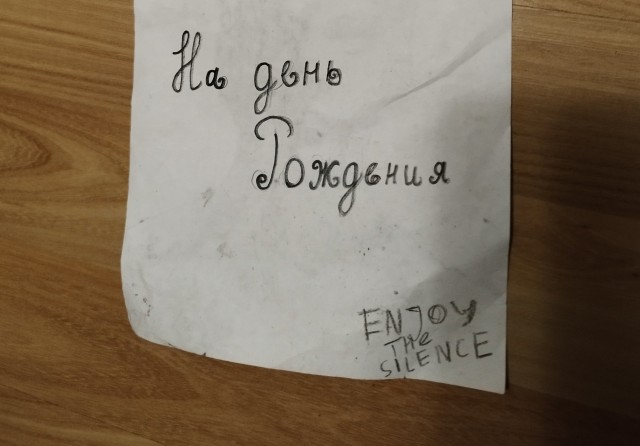 На день
Рождения
ENJOY
THe
SILENCE